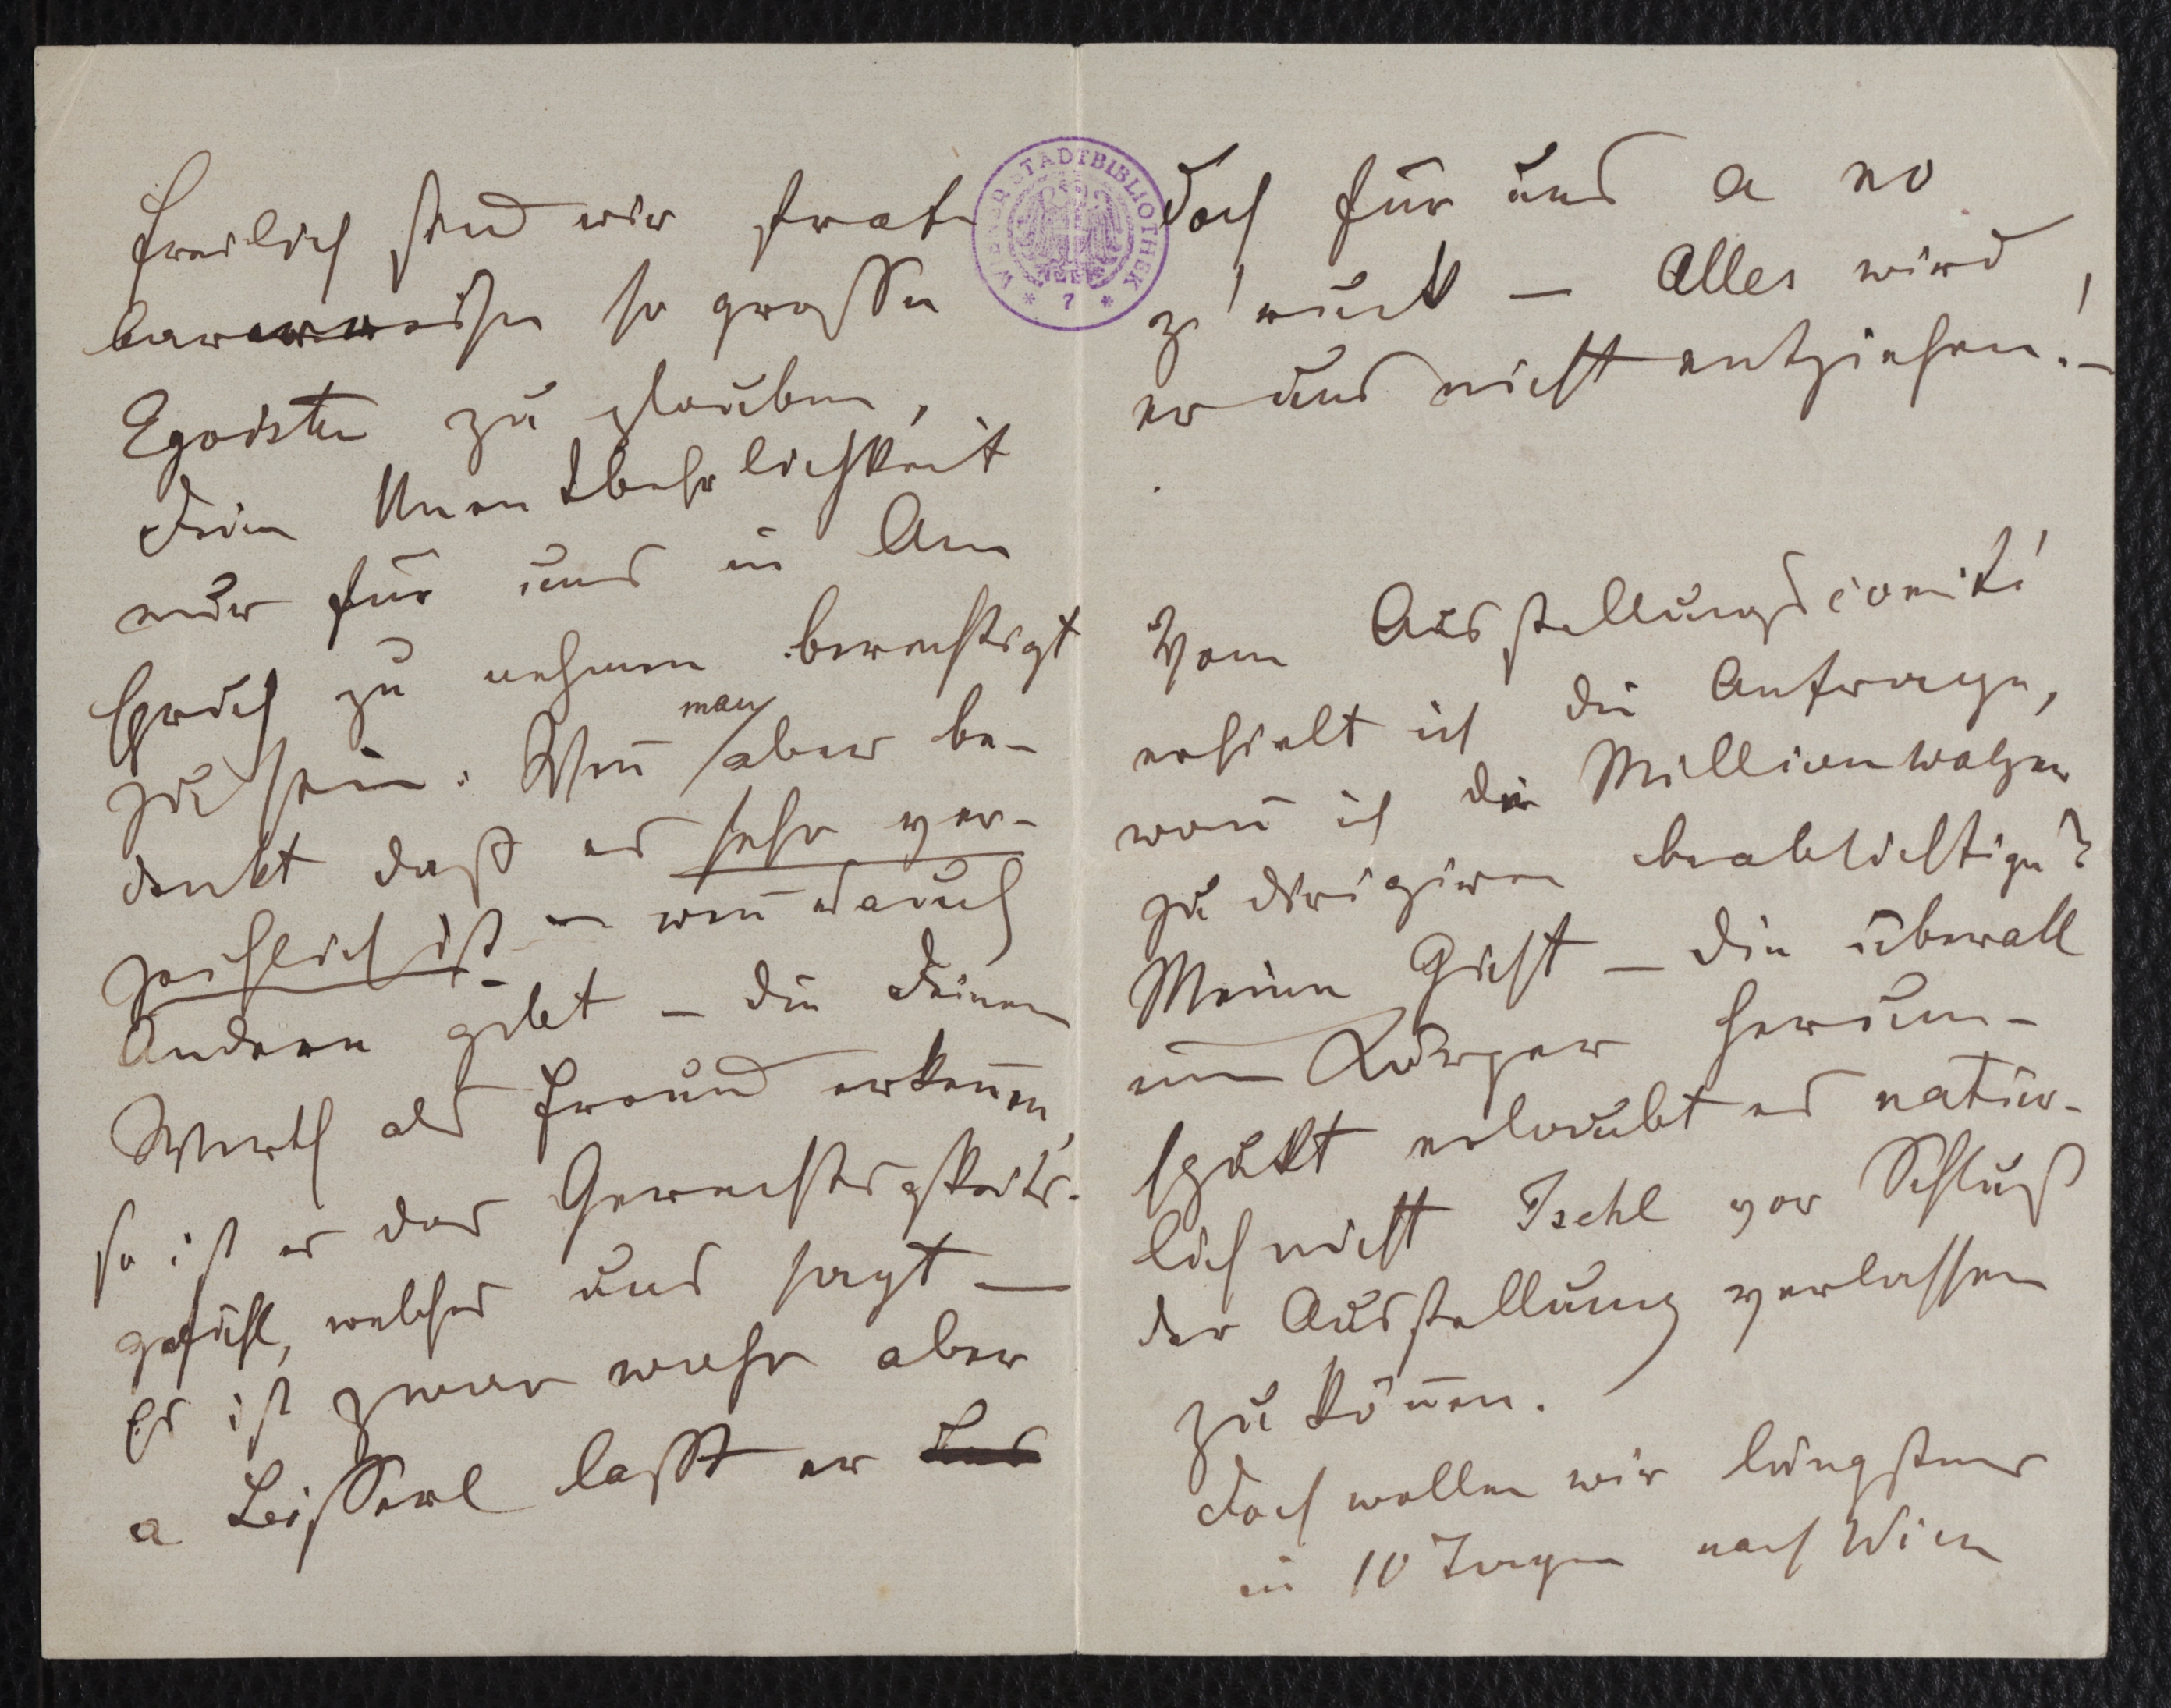 Freilich sind wir straf
barerweise so grosse
Egoisten zu glauben,
Deine Unentbehrlichkeit
nur für uns in An
spruch zu nehmen berechtigt
zu sein. Weñ man aber be-
denkt daß es sehr ver-
zeihlich ist – weñ es auch
Andere gibt – die Deinen
Werth als Freund erkeñen,
so ist es das Gerechtigkeits-
gefühl, welches uns sagt –
Es ist zwar wahr aber
a Bisserl lasst er
doch für uns a no
z'ruck – Alles wird
er uns nicht entziehen! –
Vom Ausstellungscomité
erhielt ich die Anfrage,
wañ ich die Millionwalzer
zu dirigiren beabsichtige?
Meine Gicht – die überall
im Körper herum-
spukt erlaubt es natür-
lich nicht Ischl vor Schluß
der Ausstellung verlassen
zu köñen.
Doch wollen wir längstens
in 10 Tagen nach Wien
WIENER STADTBIBLIOTHEK
* 7 *